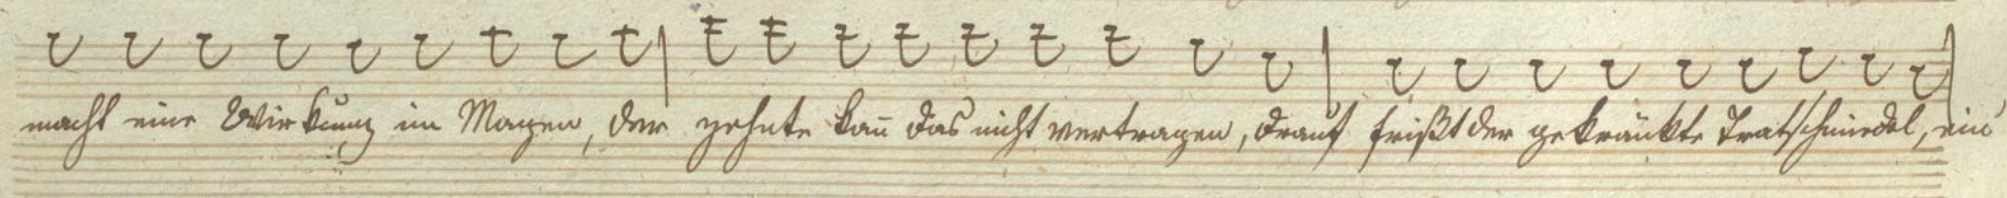 macht eine Wirkung im Magen, der zehnte kañ das nicht vertragen, drauf frißt der gekränkte Tratschmiedel, ein